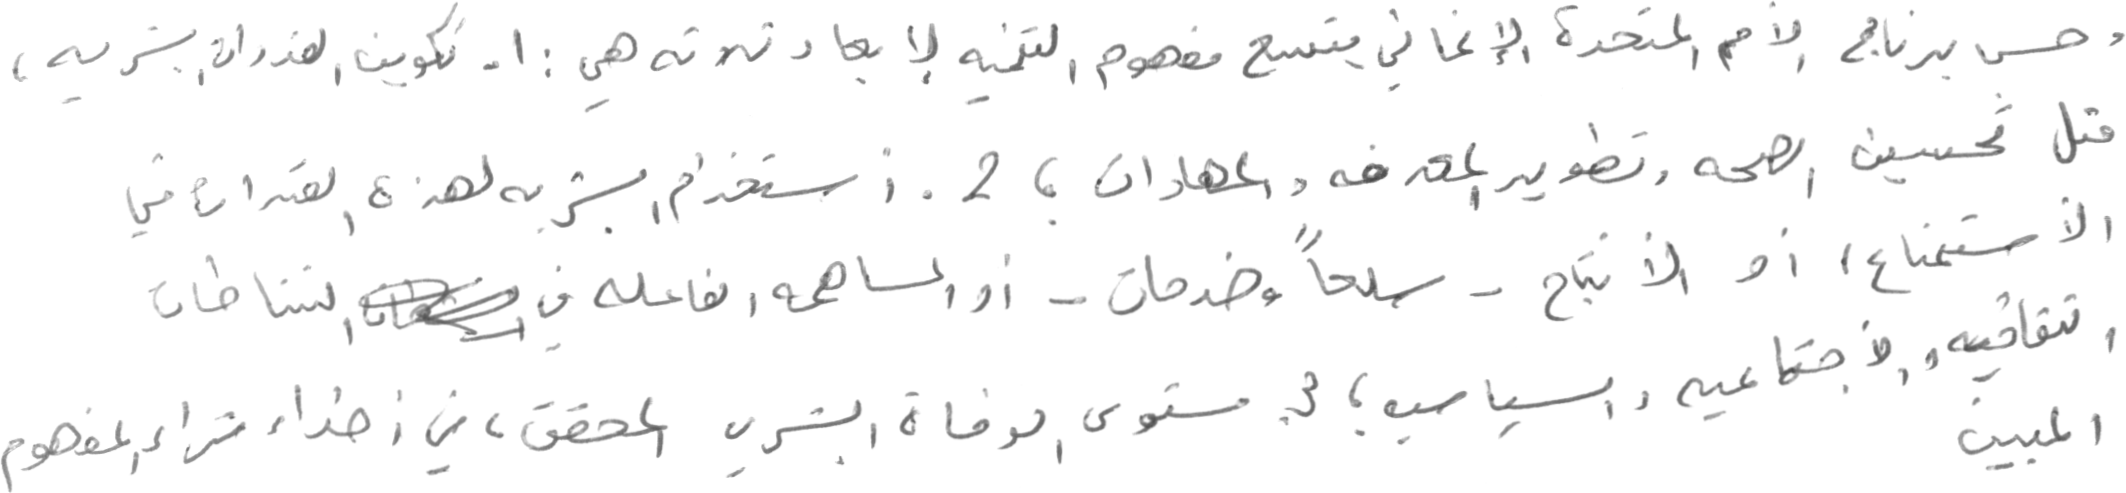 وحسب برنامج الأمم المتحدة الإنمائي يتسع مفهوم التنميه لأبعاد ثلاثه هي : 1. تكوين القدرات البشريه ،
مثل تحسين الصحه وتطوير المعرفه والمهارات ؛ 2 . أستخدام البشريه لهذة القدرات في
الأستمتاع ، أو الأنتاج - سلعاً وخدمات - أو المساهمه الفاعله في النشاطات
الثقافيه والأجتماعيه والسياسيه ؛ 3. مستوى الرفاة البشري المحقق ، في إثراء المفهوم
المبين